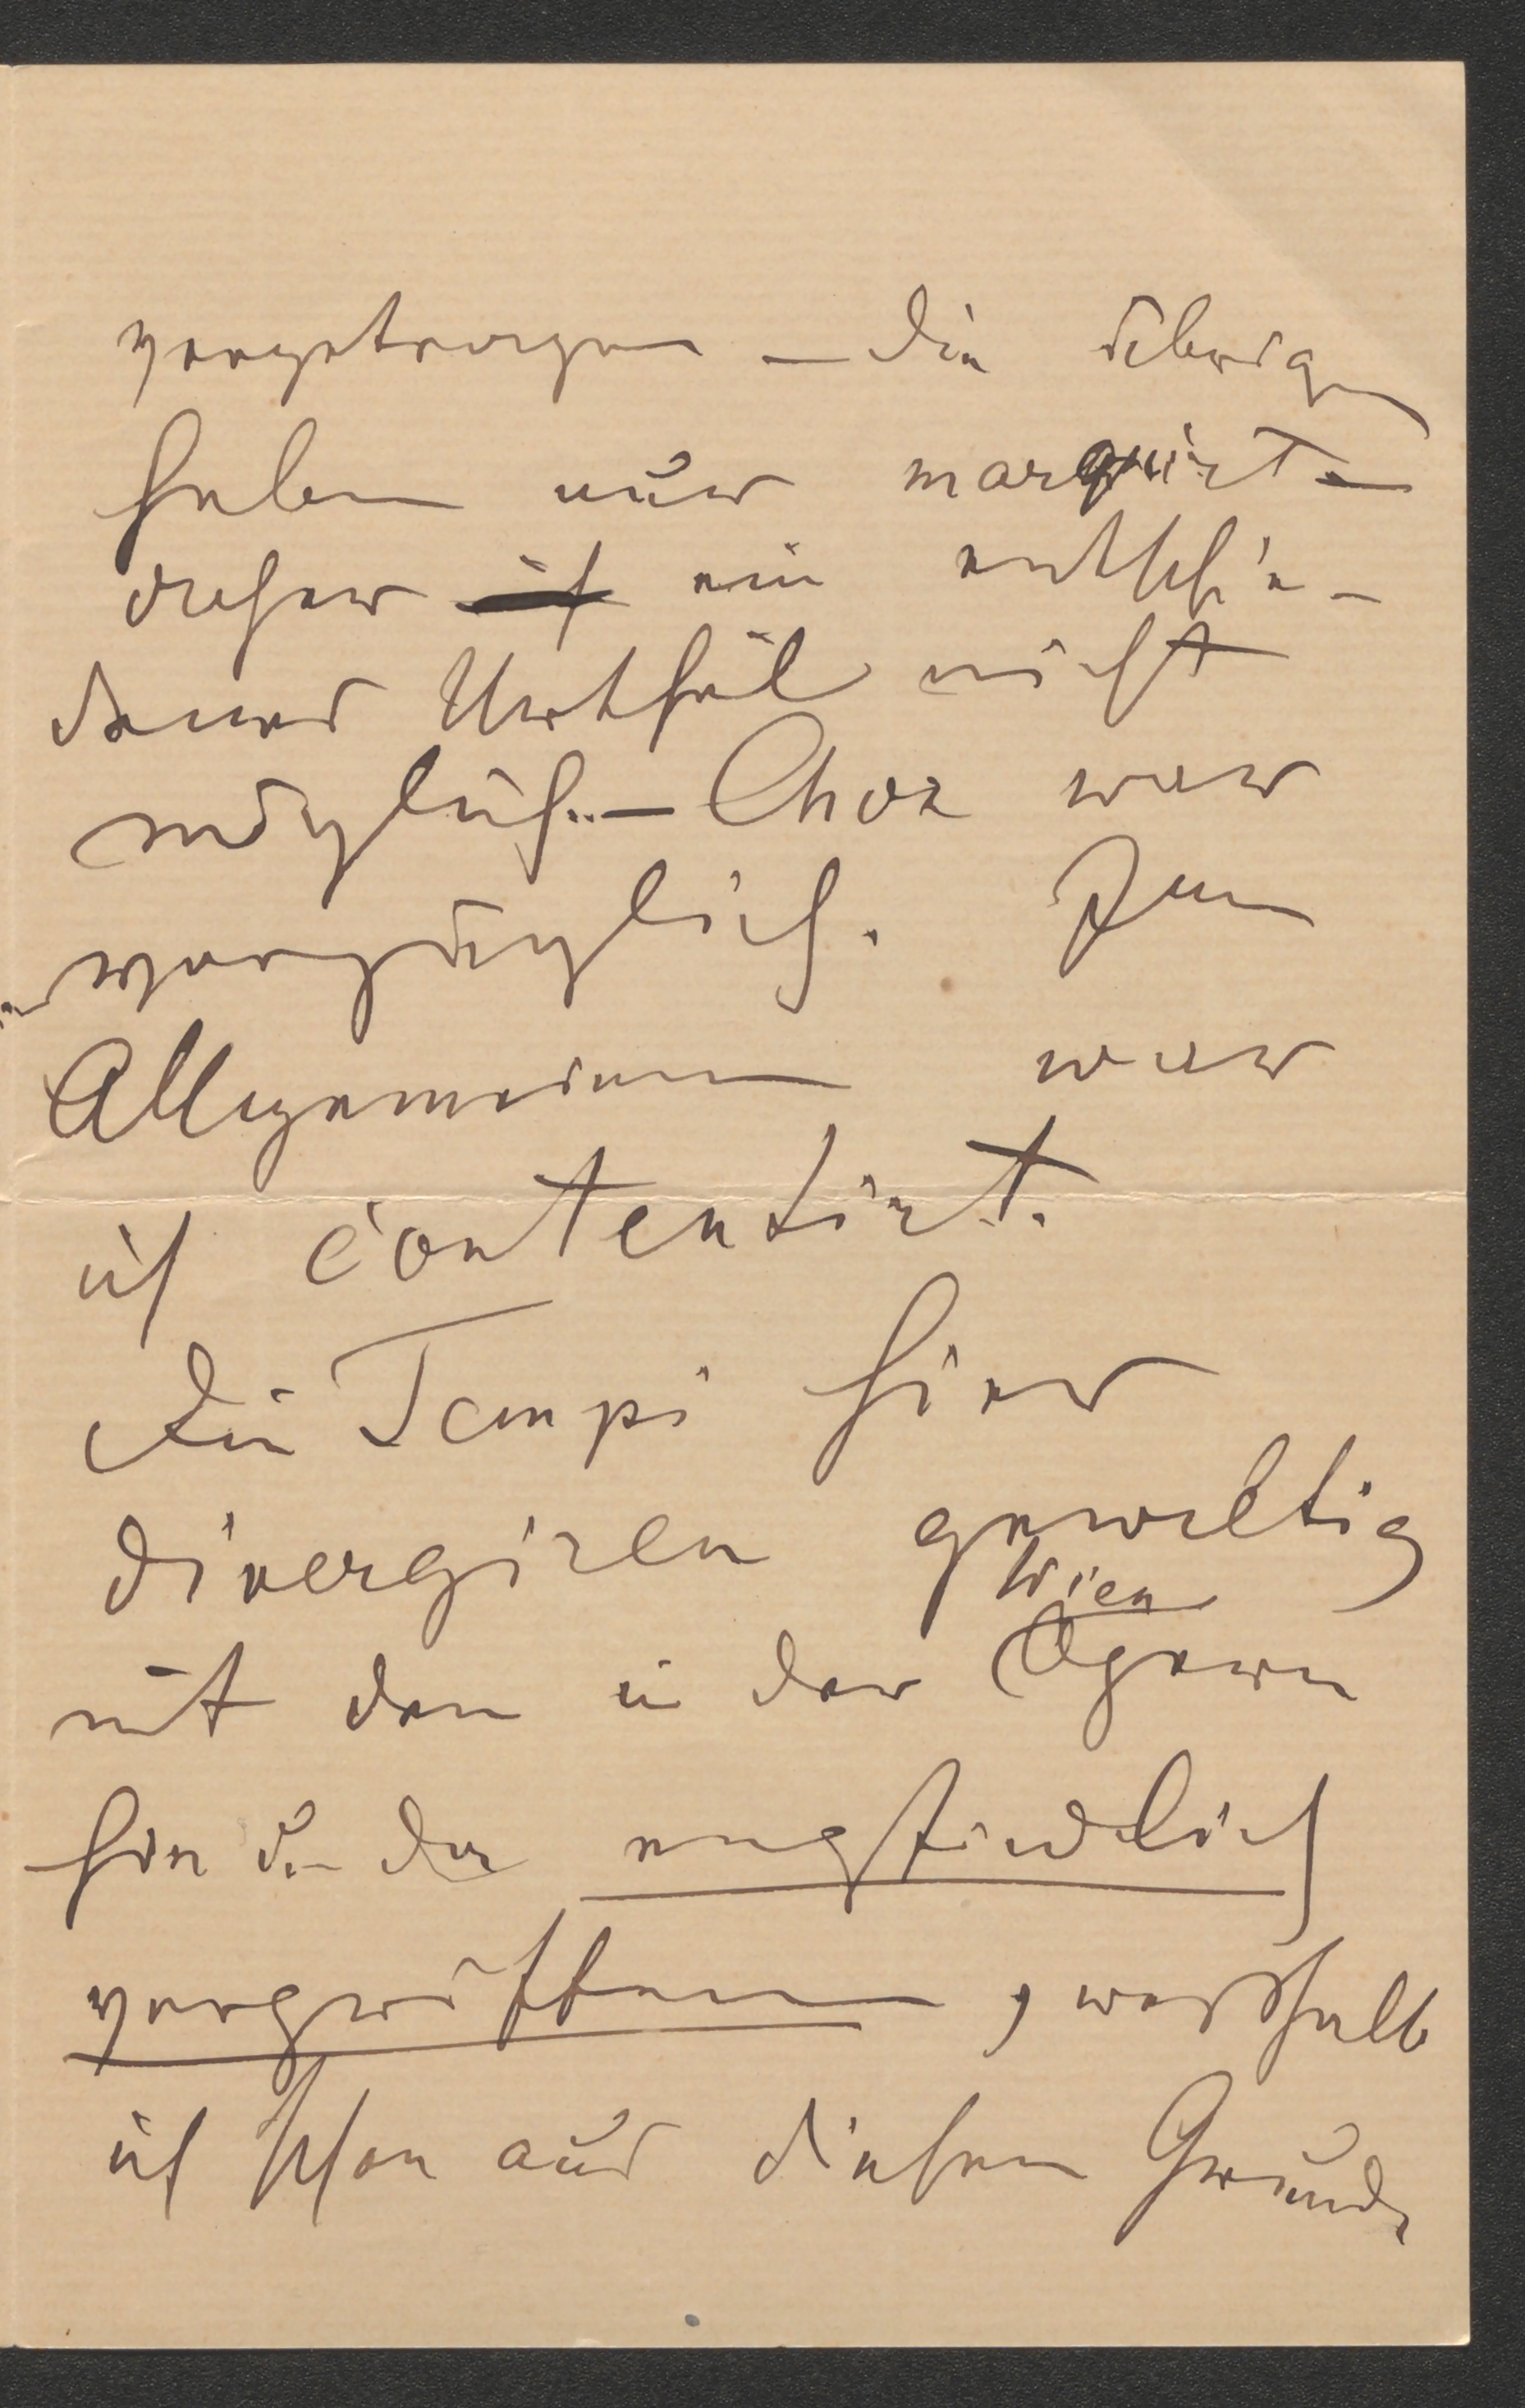 vorgetragen – die übrigen
haben nur marquirt –
daher ein entschie-
denes Urtheil nicht
möglich. – Chor war
vorzüglich. Im
Allgemeinen war
ich contentirt.
Die Tempi hier
divergiren gewaltig
mit den in der Wien
Opern
hie u. da empfindlich
vergriffenen, weßhalb
ich schon aus diesem Grunde